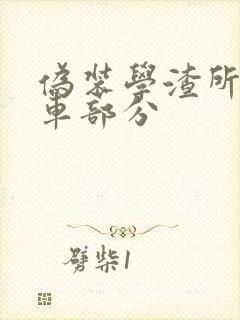 偽裝學渣所
車部分
劈柴1